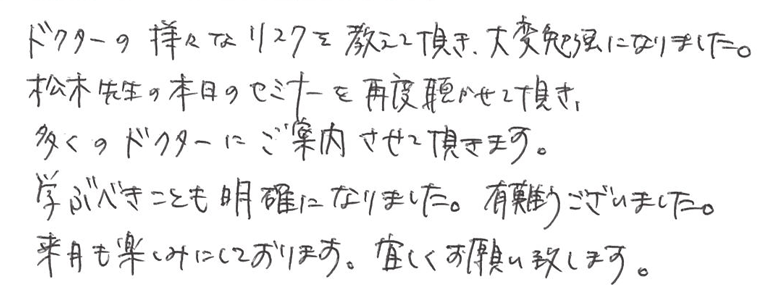 ドクターの様々なリスクを教えて頂き、大変勉強になりました。
松木先生の本日のセミナーを再度聴かせて頂き、
多くのドクターにご案内させて頂きます。
学ぶべきことも明確になりました。有難うございました。
来月も楽しみにしております。宜しくお願い致します。